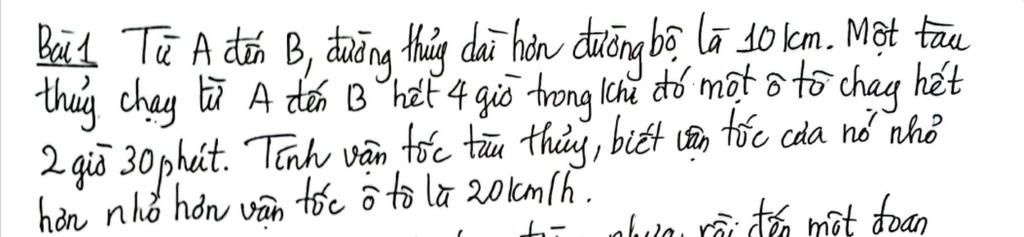 Bài 1 Từ A đến B, đường thủy dài hơn đường bộ là 10km. Một tàu
thủy chạy từ A đến B hết 4 giờ trong khi đó một ô tô chạy hết
2 giờ 30 phút. Tính vận tốc tàu thủy, biết vận tốc của nó nhỏ
hơn nhỏ hơn vận tốc ô tô là 20km/h.
rồi đến một đoạn